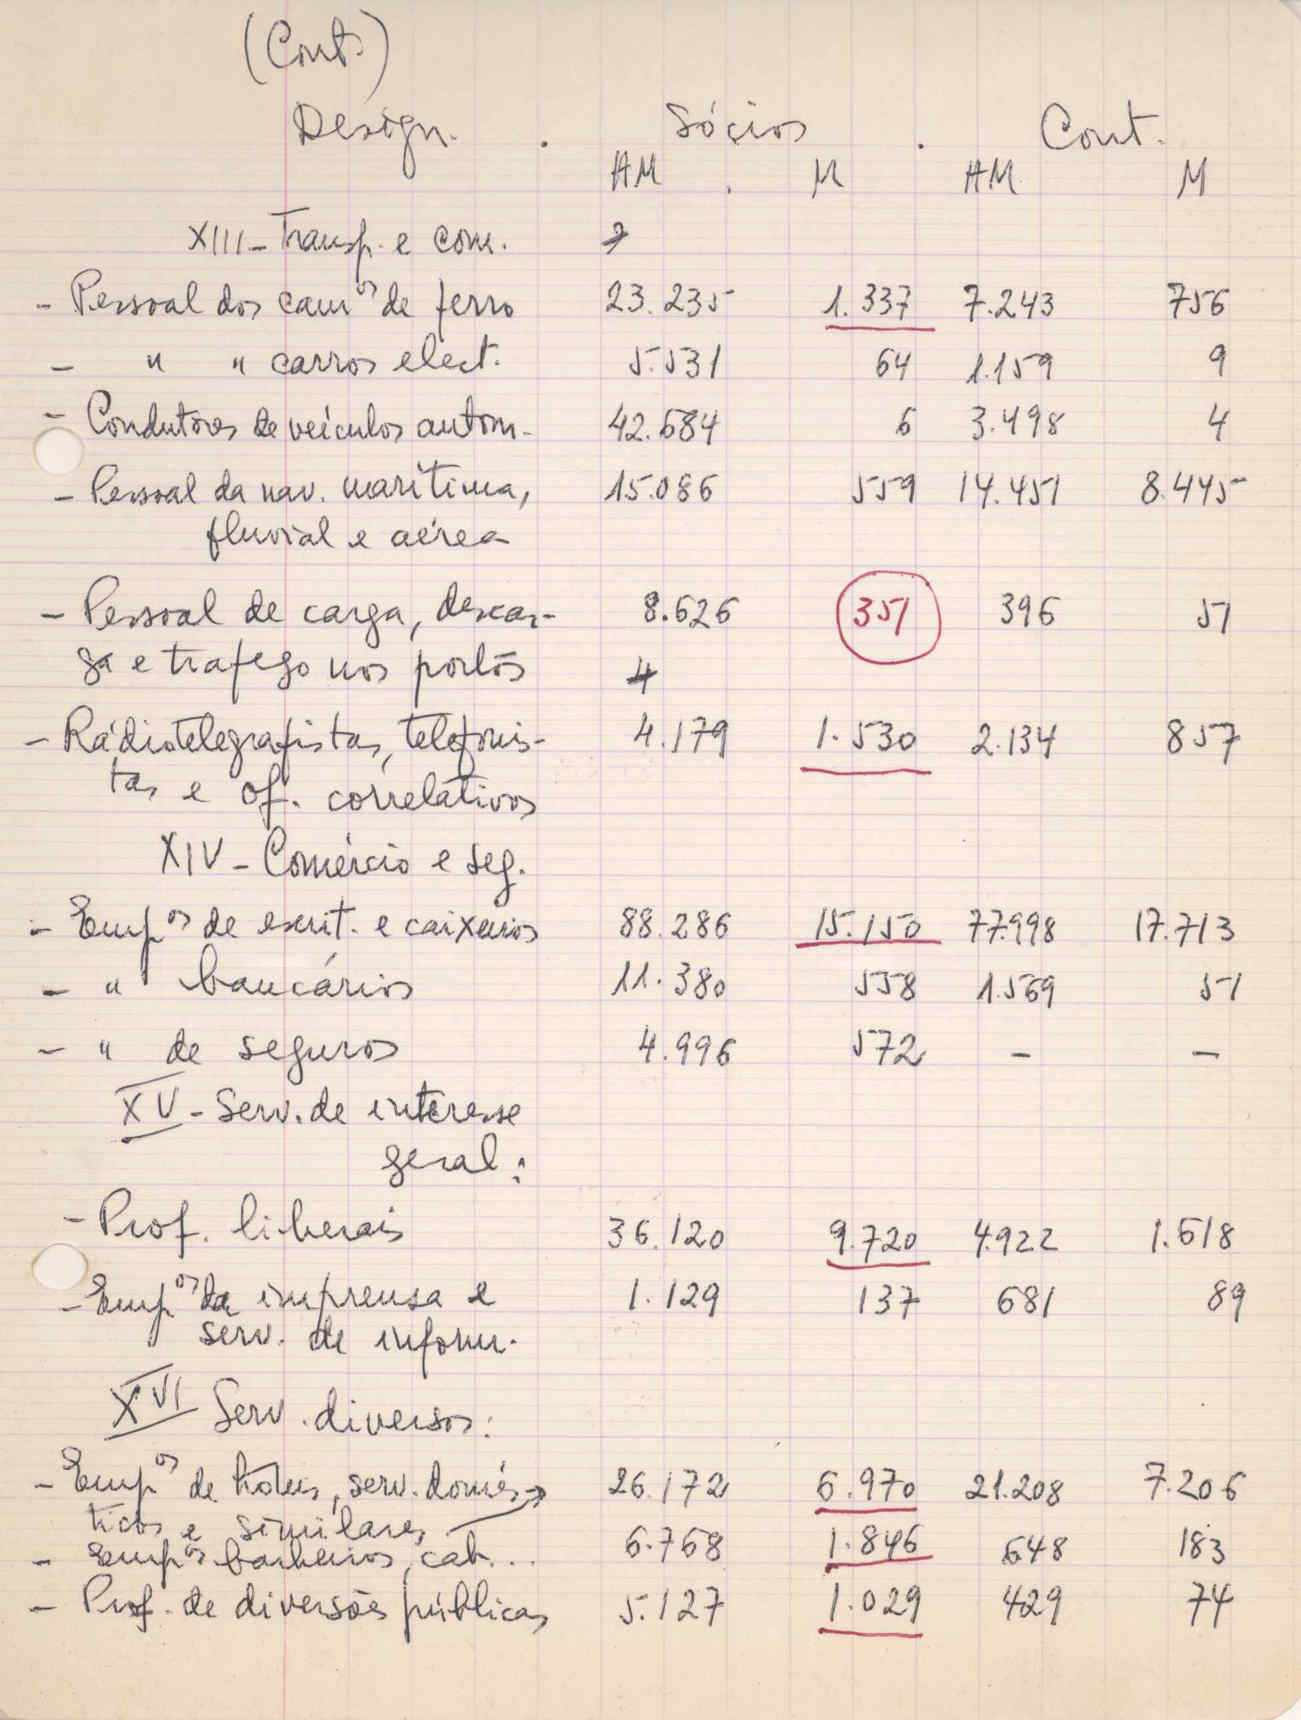 (Cont.)
Design. . Sócios . Cont.
HM . M HM M
XIII - Transp. e com.
- Pessoal dos camos de ferro 23.235 1.337 7.243 756
- " " carros elect. 5.531 64 1.159 9
- Condutores de veículos autom. 42.684 6 3.498 4
- Pessoal da nav. marítima, 15.086 559 14.451 8.445
fluvial e aérea
- Pessoal de carga, descar- 8.626 351 396 51
ga e trafego nos portos
- Rádiotelegrafistas, telefonis- 4.179 1.530 2.134 857
tas e of. correlativos
XIV - Comércio e seg.
- Empos de escrit. e caixeiros 88.286 15.150 77.998 17.713
- " bancários 11.380 558 1.569 51
- " de seguros 4.996 572 - -
XV - Serv. de interesse
geral:
- Prof. liberais 36.120 9.720 4.922 1.618
- Empos da imprensa e 1.129 137 681 89
serv. de inform.
XVI Serv. diversos:
- Empos de hoteis, serv. domés- 26.172 6.970 21.208 7.206
ticos e similares
- Empos barbeiros, cab... 6.768 1.846 648 183
- Prof. de diversões públicas 5.127 1.029 429 74